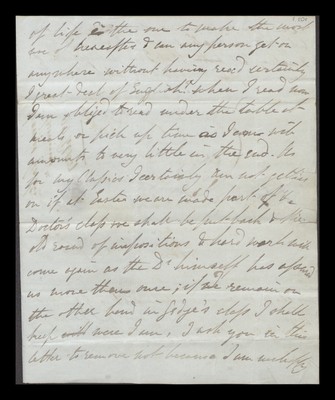 of life is the one to make the most
use of hereafter & can any person get on
anywhere without having read certainly
a great deal of English. When I read now
I am obliged to read under the table at
meals, or pick up time as I can with
amounts to very little in the end. As
for my Classics I certainly am not getting
on if at Easter we are made part of the
Doctors class we shall be put back & the
old round of impositions & hard work will
come again as the Dr. himself has assured
us more than once; if we remain on
the other hand in Gidge's class I shall
keep where I am; I ask you in this
letter to remove not because I am